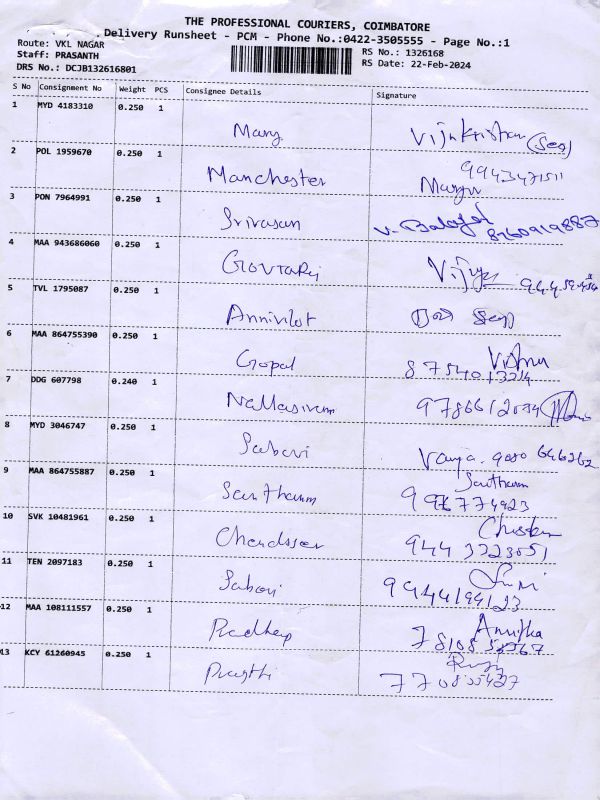 THE PROFESSIONAL COURIERS, COIMBATORE
Delivery Runsheet - PCM - Phone No.:0422-3505555 - Page No.:1
Route: VKL NAGAR
Staff: PRASANTH
DRS No.: DCJB132616801
RS No.: 1326168
RS Date: 22-Feb-2024
S No Consignment No Weight PCS Consignee Details Signature
1 MYD 4183310 0.250 1
Mary (Seal)
2 POL 1959670 0.250 1
Manchester
3 PON 7964991 0.250 1
Srivasan 8760919887
4 MAA 943686060 0.250 1
5 TVL 1795087 0.250 1
6 MAA 864755390 0.250 1
Gopal Vishnu
8754013214
7 DDG 607798 0.240 1
Nallasivam
8 MYD 3046747 0.250 1
Sabari 9080 646262
9 MAA 864755887 0.250 1
Santhanm Santhanm
996774923
10 SVK 10481961 0.250 1
9443223051
11 TEN 2097183 0.250 1
Sabari
9944199123
12 MAA 108111557 0.250 1
Pradhep
13 KCY 61260945 0.250 1